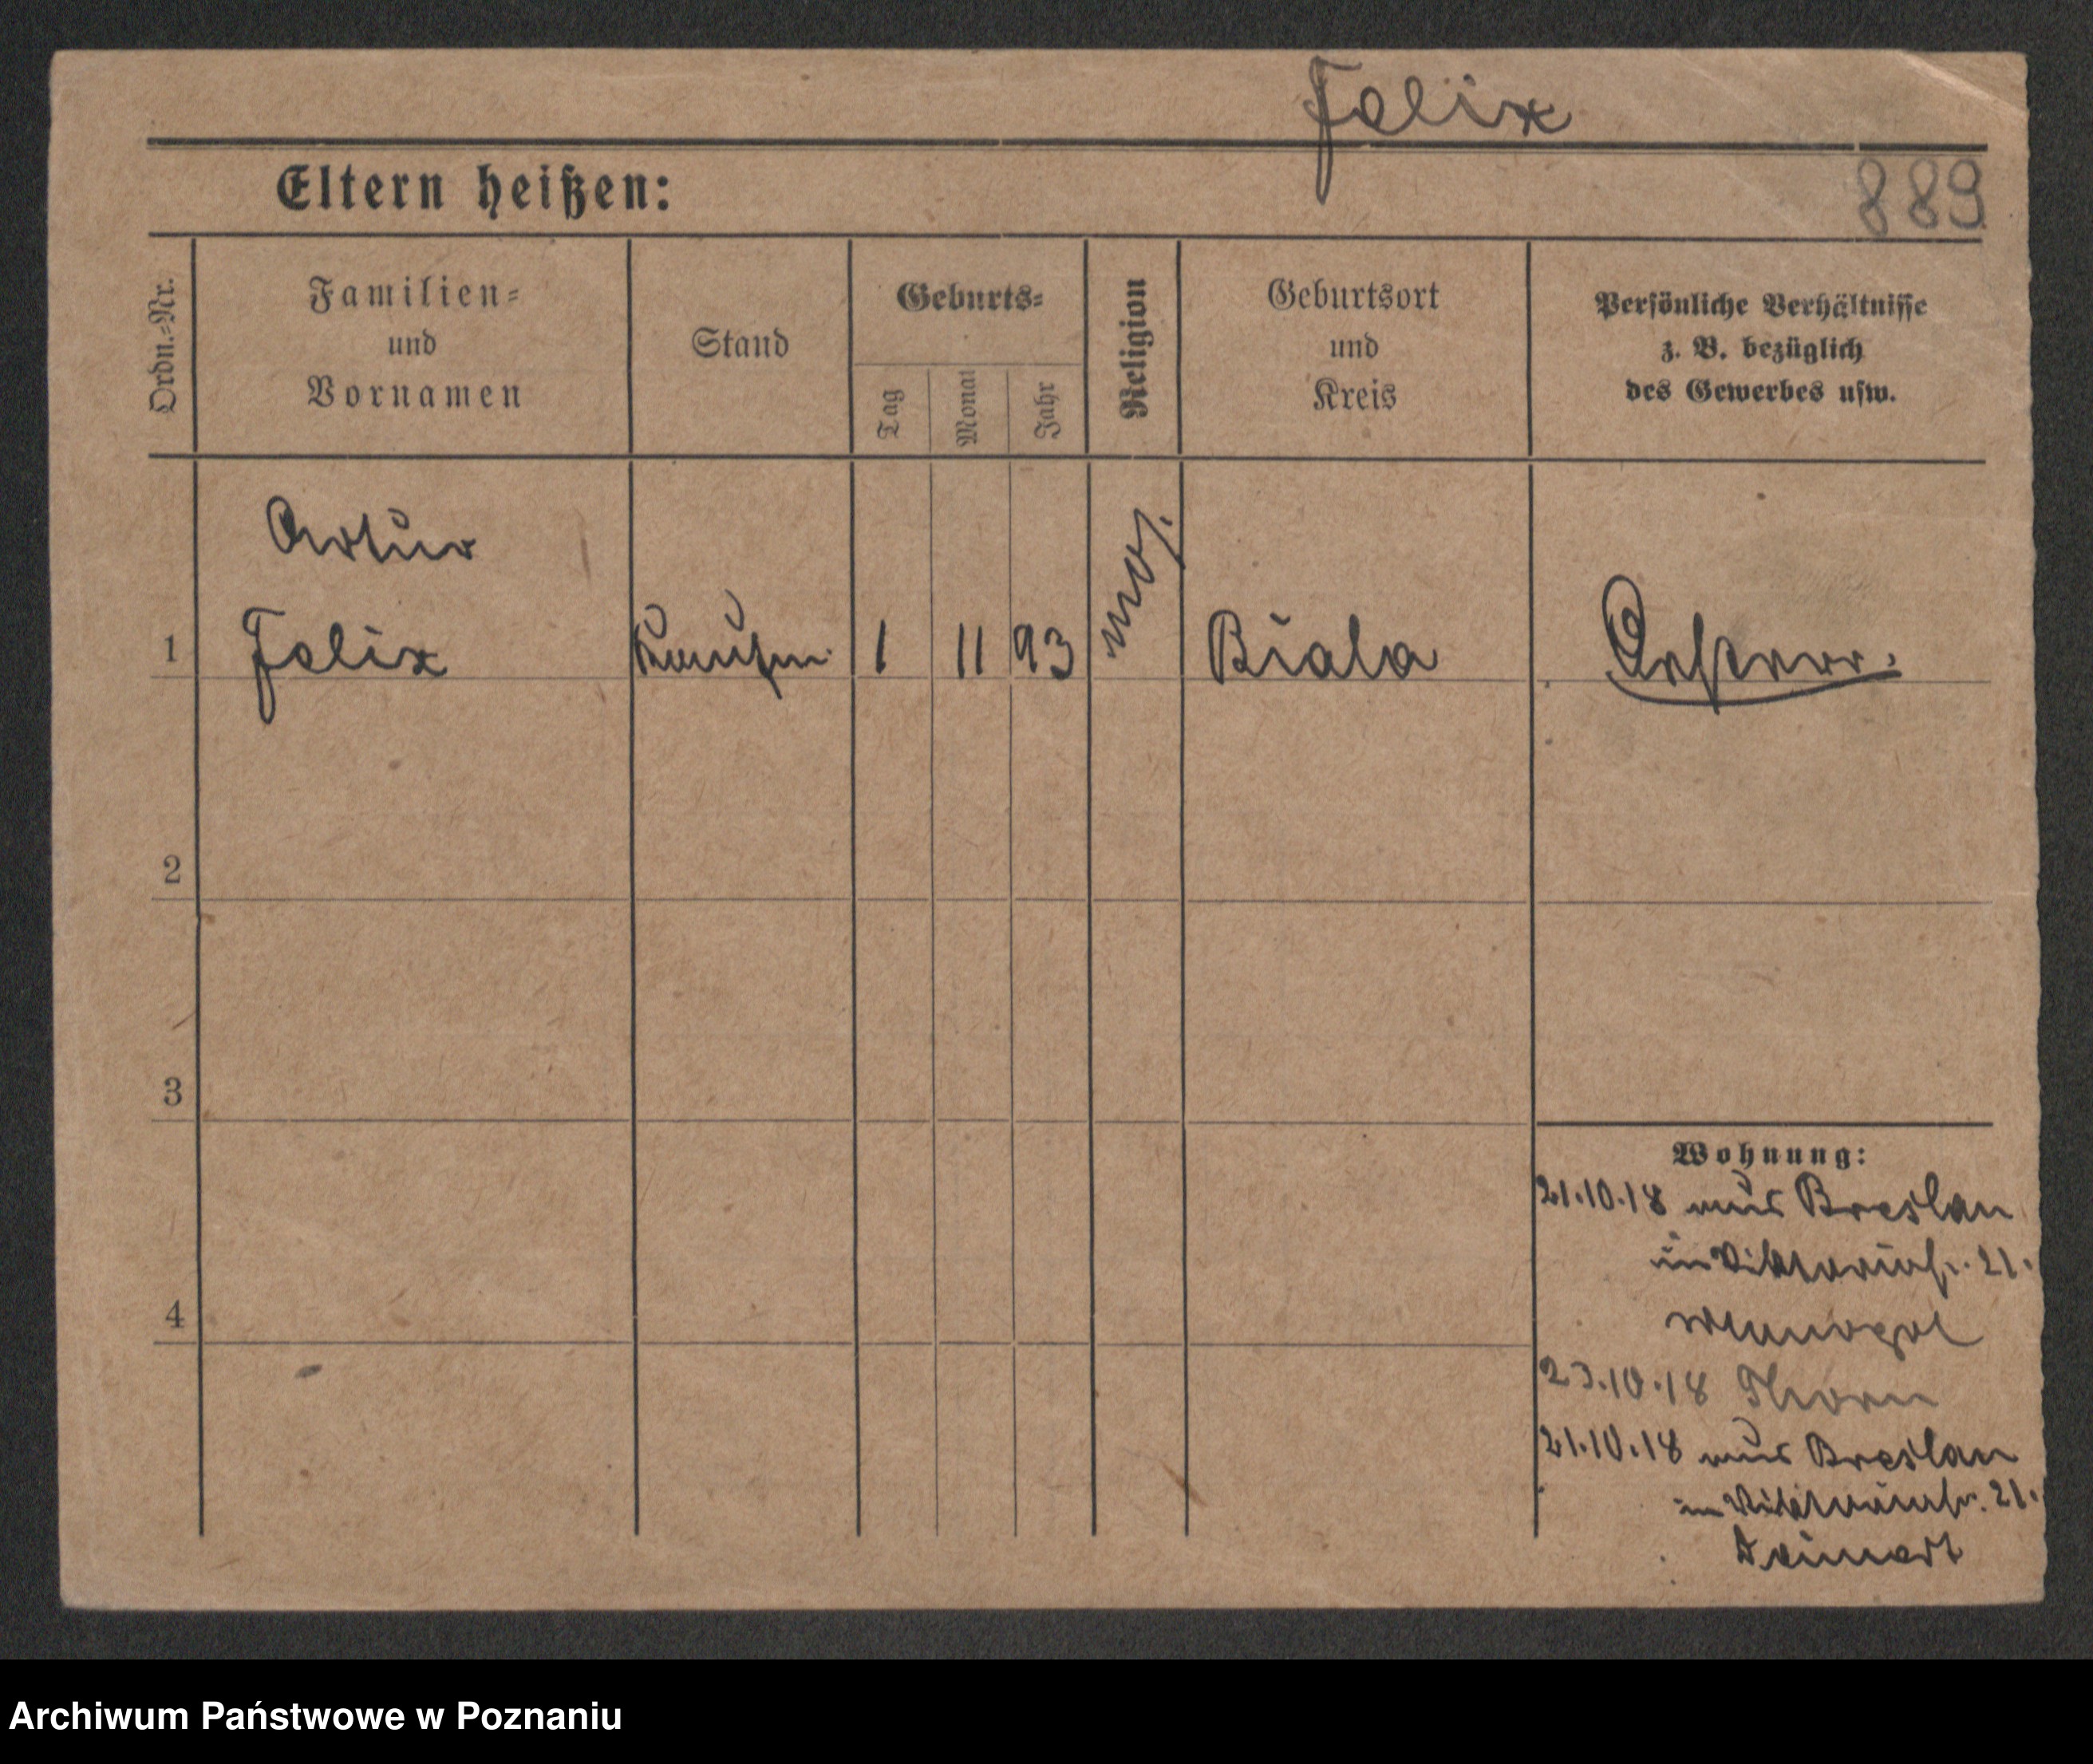 Felix
889
Eltern heißen:
Ordn.=Nr.
Familien=
und
Vornamen
Stand
Geburts=
Tag
Monat
Jahr
Religion
Geburtsort
und
Kreis
Persönliche Verhältnisse
z. B. bezüglich
des Gewerbes usw.
Artur
1 Felix Kaufm. 1 11 93 mos. Biala Oesterr.
2
3
4
Wohnung:
21.10.18 aus Breslau
in Viktoriastr. 21.
23.10.18 Thorn
21.10.18 aus Breslau
in Viktoriastr. 21.
Archiwum Państwowe w Poznaniu